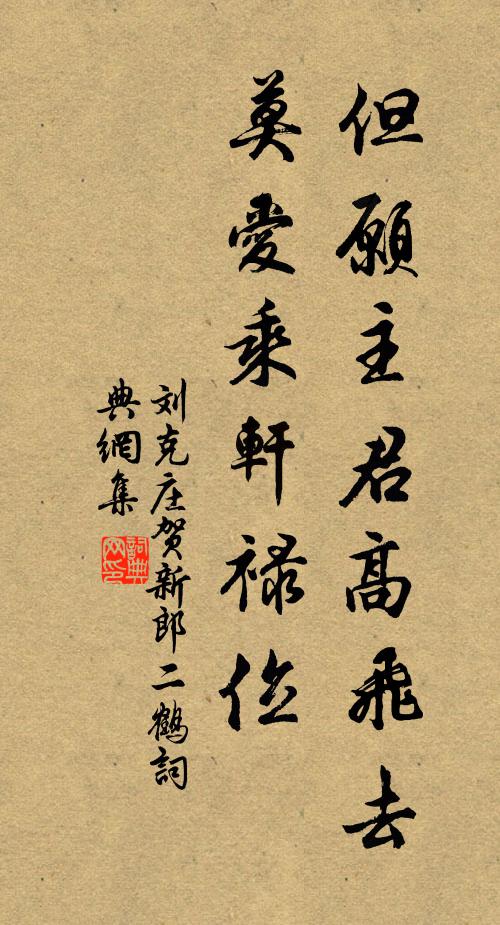 但願主君高飛去
莫愛乘軒祿位
刘克庄贺新郎二鶴詞
典網集
詞典
网印